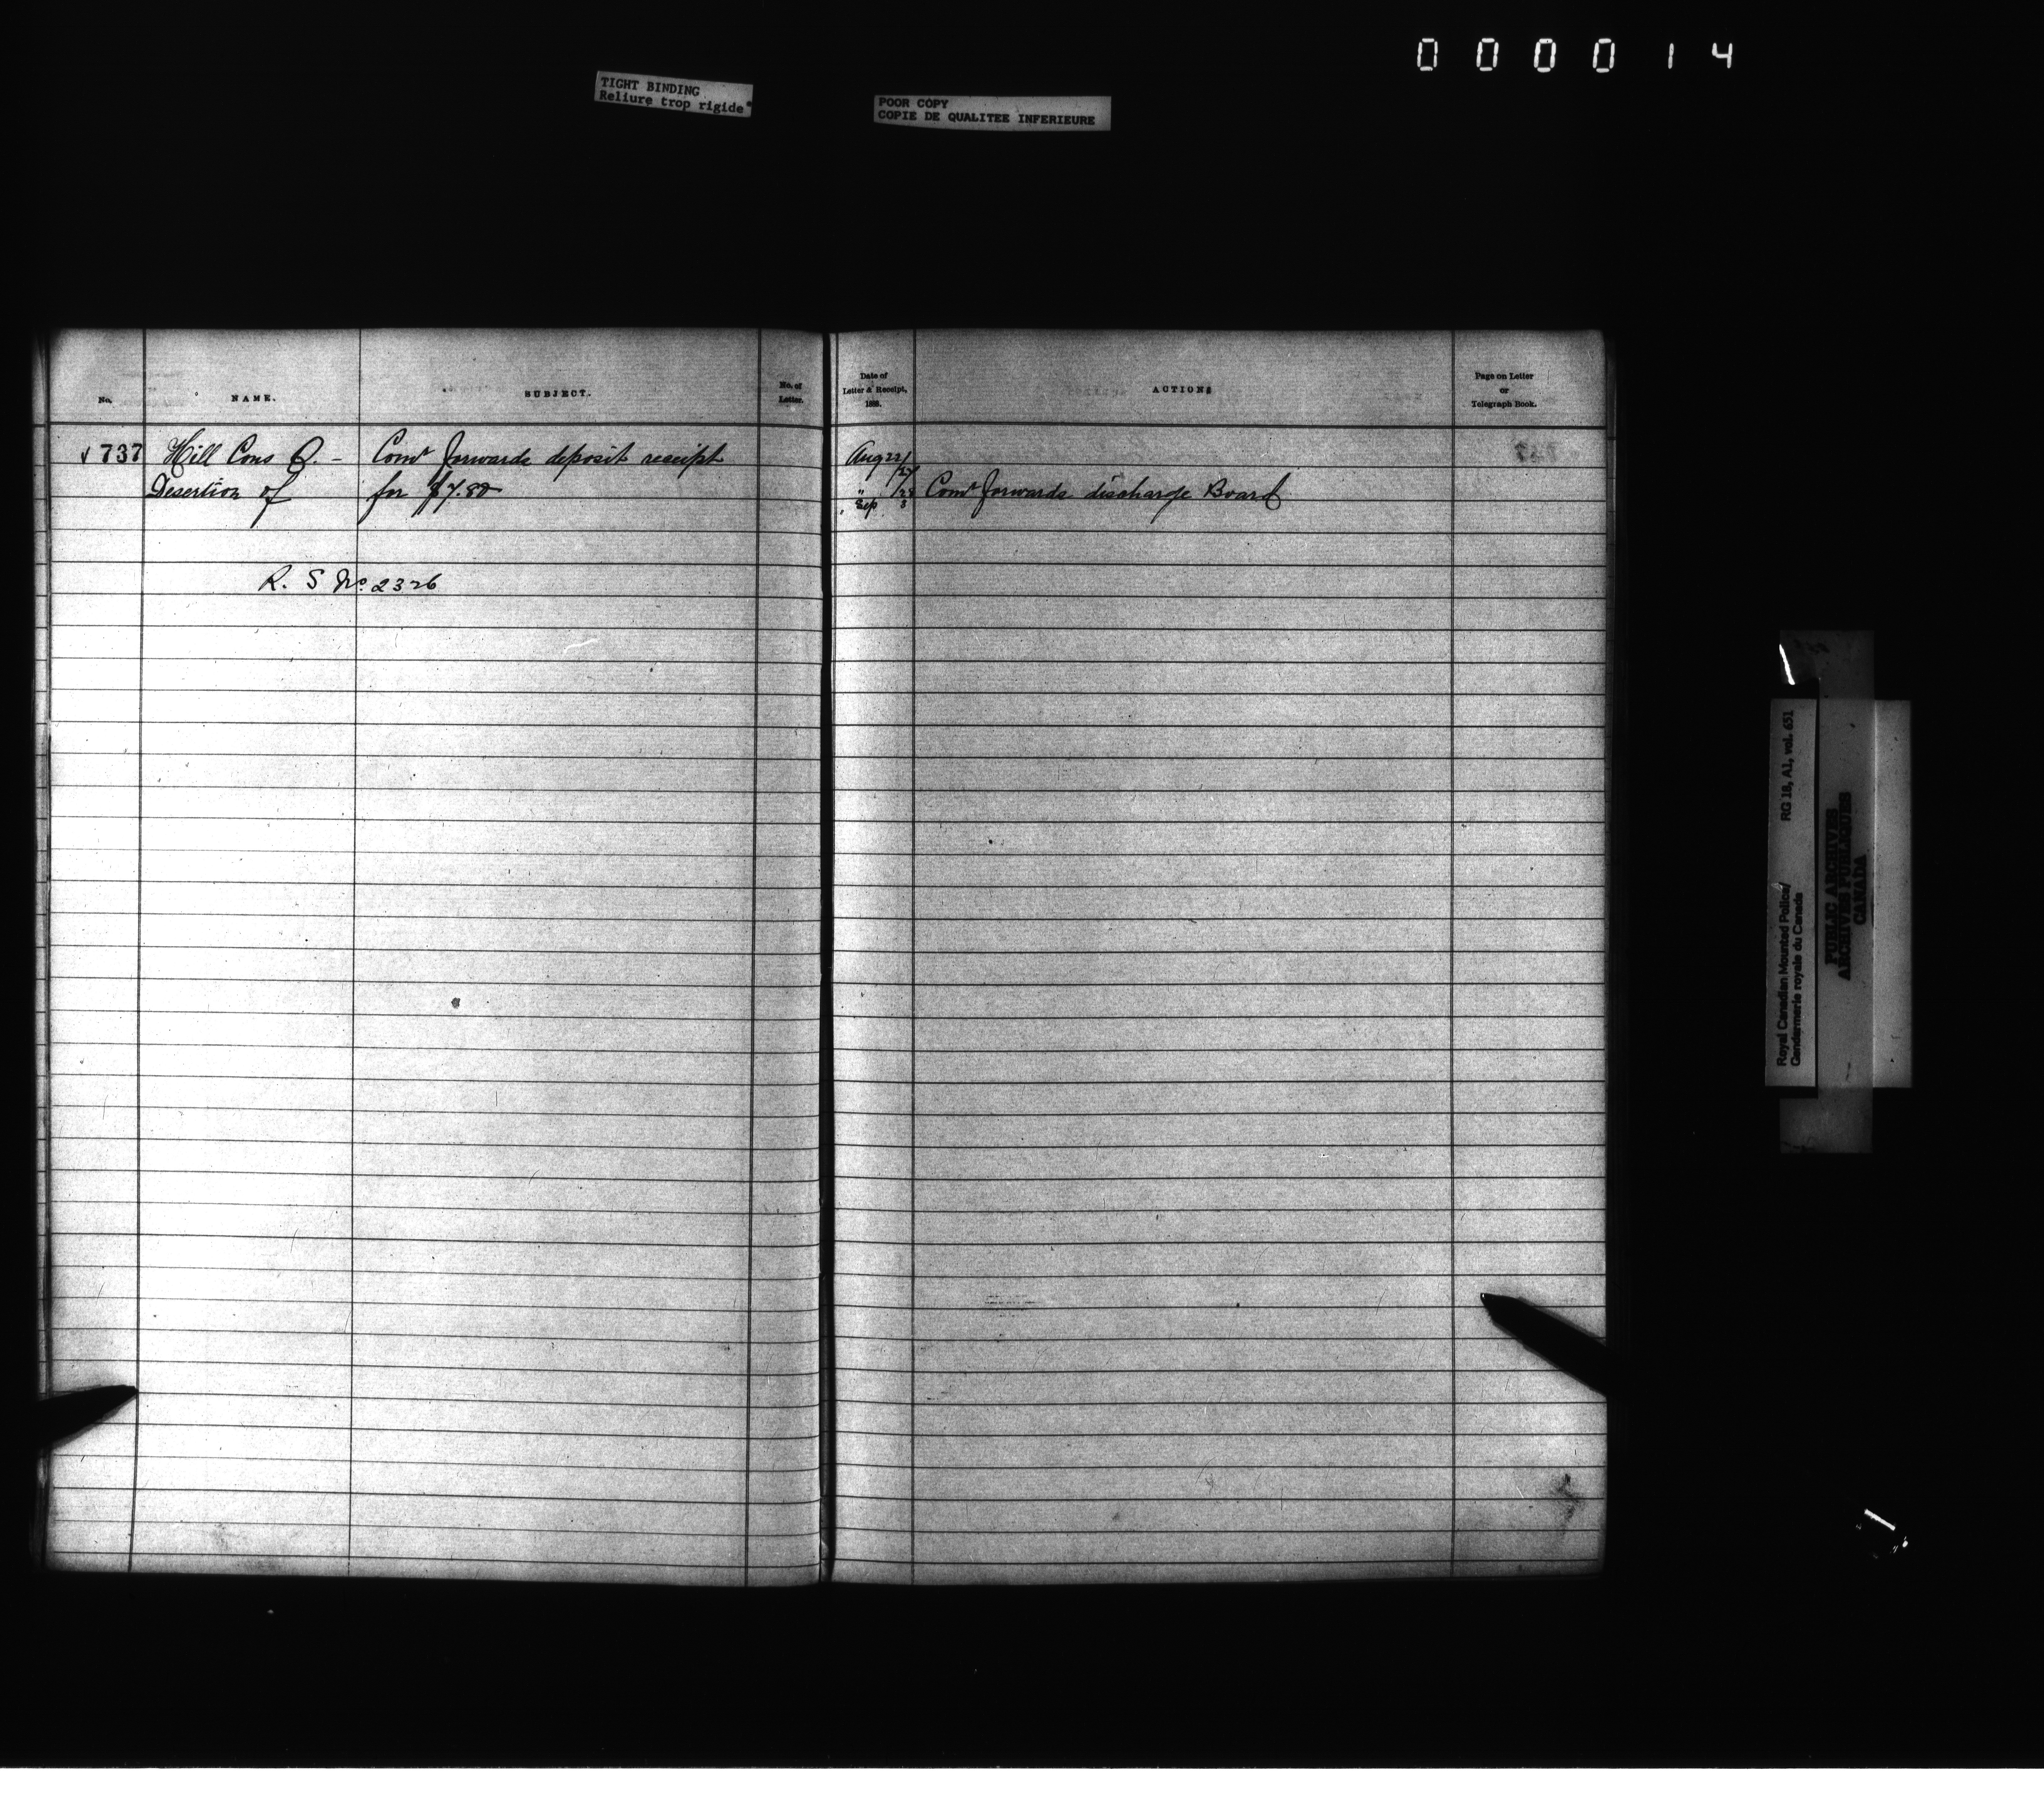 000014
TIGHT BINDING
Reliure trop rigide
POOR COPY
COPIE DE QUALITEE INFERIEURE
No.
NAME.
SUBJECT.
No. of
Letter.
Date of
Letter & Receipt,
188 .
ACTIONS
Page on Letter
or
Telegraph Book.
√ 737 Hill Cons C. - Comr forwards deposit receipt Aug 22/27
Desertion of for $7.80 " /28 Comr forwards discharge Board
Sep 3
R. S No. 2326
Royal Canadian Mounted Police/ RG 18, A1, vol. 651
Gendarmerie royale du Canada
PUBLIC ARCHIVES
ARCHIVES PUBLIQUES
CANADA